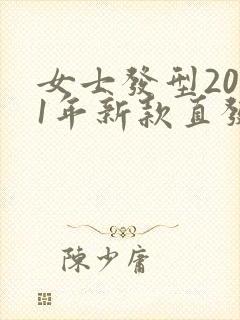 女士發型20
1年新款直發
陳少庸